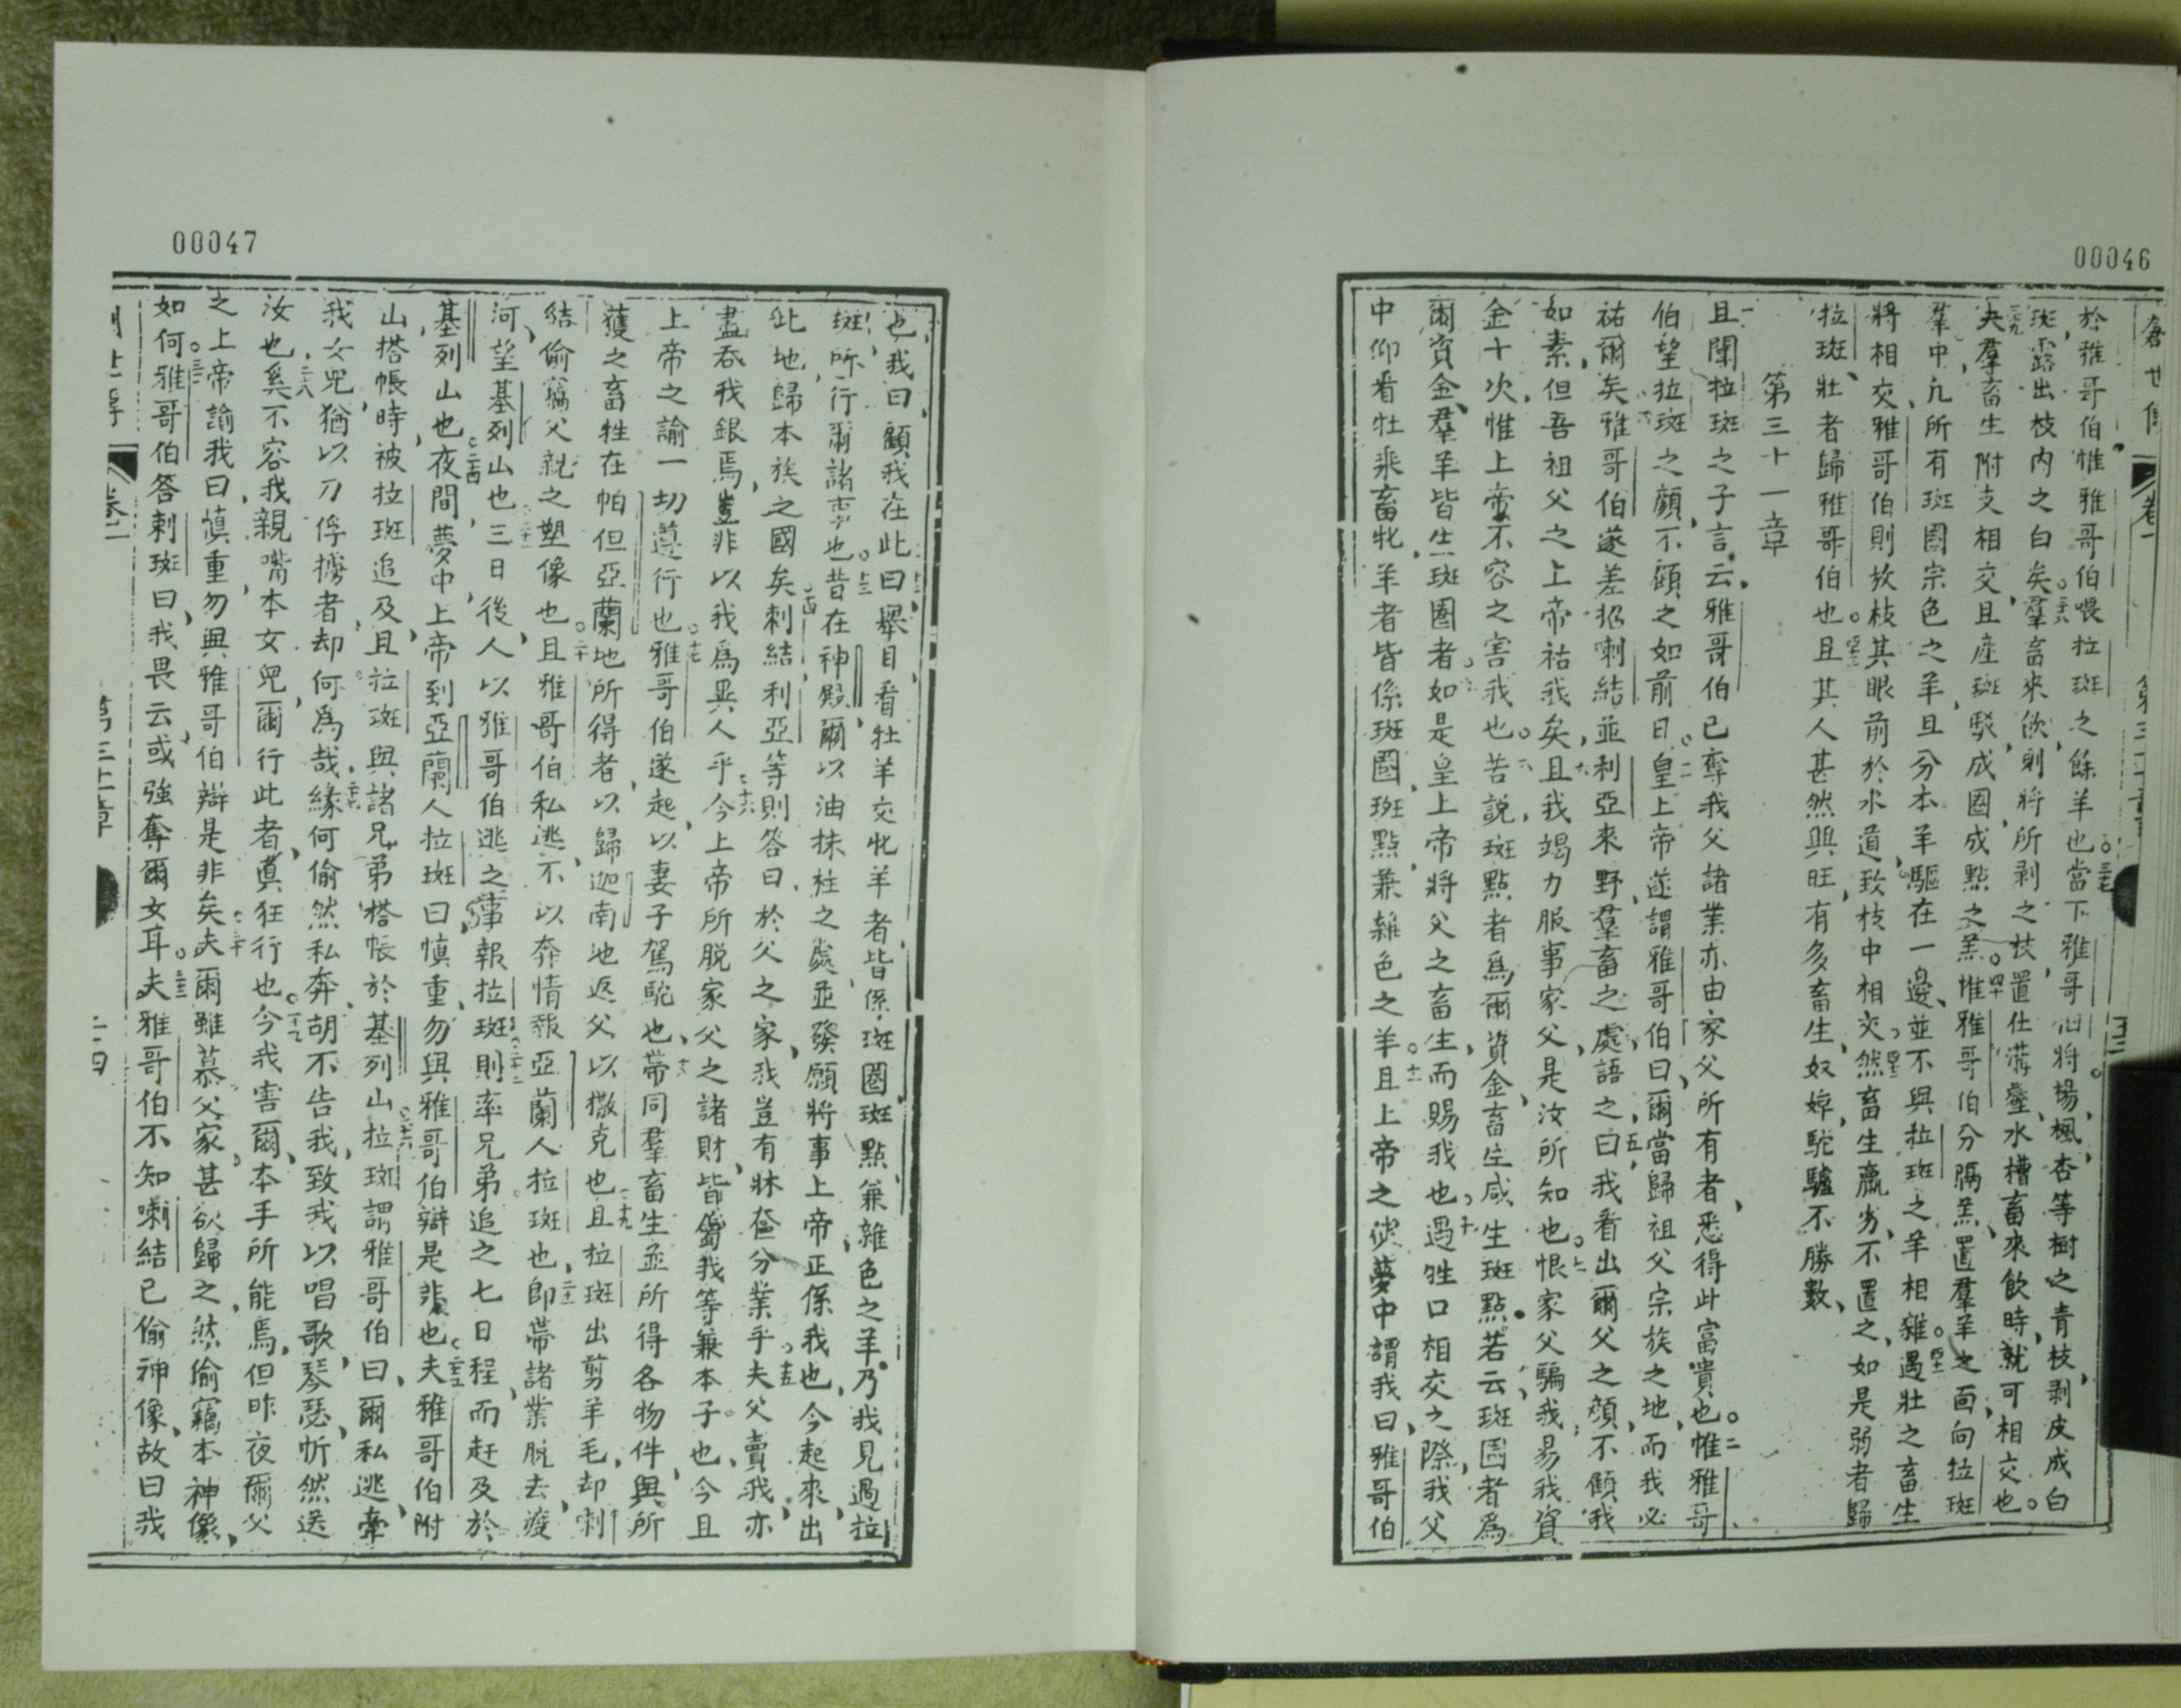 00046
創世傳 卷一
於雅哥伯惟雅哥伯喂拉斑之餘羊也當下雅哥伯將楊楓杏等樹之青枝剥皮成白
斑露出枝内之白矣羣畜來飲則將所剥之枝置在溝壑水槽畜來飲時就可相交也
夫羣畜生附支相交且產斑駁成圈成點之羔惟雅哥伯分隔羔置羣羊之面向拉斑
羣中凡所有斑圈宗色之羊且分本羊驅在一邊並不與拉斑之羊相雜遇壯之畜生
將相交雅哥伯則放枝其眼前於水道致枝中相交然畜生羸劣不置之如是弱者歸
拉斑壯者歸雅哥伯也且其人甚然興旺有多畜生奴婢駝驢不勝數
第三十一章
且聞拉斑之子言云雅哥伯已奪我父諸業亦由家父所有者悉得此富貴也二惟雅哥
伯望拉斑之顏不顧之如前日皇上帝遂謂雅哥伯曰爾當歸祖父宗族之地而我必
祐爾矣雅哥伯遂差招喇結並利亞來野羣畜之處五語之曰我看出爾父之顏不顧我
如素但吾祖父之上帝祐我矣且我竭力服事家父是汝所知也恨家父騙我易我資
金十次惟上帝不容之害我也若說斑點者爲爾資金畜生咸生斑點若云斑圈者爲
爾資金羣羊皆生斑圈者如是皇上帝將父之畜生而賜我也十遇牲口相交之際我父
中仰看牡乘畜牝羊者皆係斑圈斑點兼雜色之羊且上帝之徒夢中謂我曰雅哥伯
00047
也我曰顧我在此曰舉目看牡羊交牝羊者皆係斑圈斑點兼雜色之羊乃我見過拉
斑所行爾諸事也十三昔在神殿爾以油抹柱之處並發願將事上帝正係我也今起來出
此地歸本族之國矣十四刺結利亞等則答曰於父之家我豈有牀奩分業乎十五夫父賣我亦
盡吞我銀焉豈非以我爲異人乎十六今上帝所脫家父之諸財皆屬我等兼本子也今且
上帝之諭一切遵行也十七雅哥伯遂起以妻子駕駝也十八帶同羣畜生並所得各物件與所
獲之畜牲在帕但亞蘭地所得者以歸迦南地返父以撒克也十九且拉斑出剪羊毛却喇
結偷竊父親之塑像也二十且雅哥伯私逃不以奔情報亞蘭人拉斑也二十一卽帶諸業脫去渡
河望基列山也二十二三日後人以雅哥伯逃之事報拉斑二十三則率兄弟追之七日程而赶及於
基列山也二十四夜間夢中上帝到亞蘭人拉斑曰慎重勿與雅哥伯辯是非也二十五夫雅哥伯附
山搭帳時被拉斑追及且拉斑與諸兄弟搭帳於基列山二十六拉斑謂雅哥伯曰爾私逃牽
我女兒猶以刀俘擄者却何爲哉緣何偷然私奔胡不告我致我以唱歌琴瑟忻然送
汝也二十八奚不容我親嘴本女兒爾行此者眞狂行也二十九今我害爾本手所能焉但昨夜爾父
之上帝諭我曰慎重勿與雅哥伯辯是非矣三十夫爾雖慕父家甚欲歸之然偷竊本神像
如何三十一雅哥伯答刺斑曰我畏云或強奪爾女耳三十二夫雅哥伯不知喇結已偷神像故曰我
創世傳 卷一 第三十一章 二十四